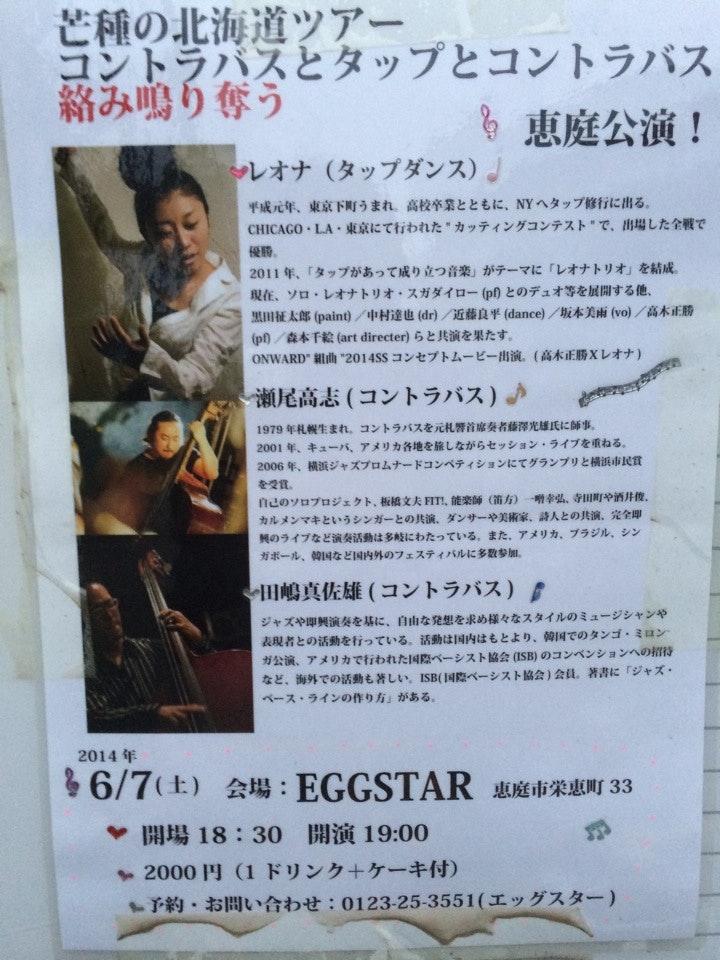 芒種の北海道ツアー
コントラバスとタップとコントラバス
絡み鳴り奪う
恵庭公演！
レオナ（タップダンス）
平成元年、東京下町うまれ。高校卒業とともに、NYへタップ修行に出る。
CHICAGO・L.A・東京にて行われた"カッティングコンテスト"で、出場した全戦で
優勝。
2011年、「タップがあって成り立つ音楽」がテーマに「レオナトリオ」を結成。
現在、ソロ・レオナトリオ・スガダイロー(pf)とのデュオ等を展開する他、
黒田征太郎(paint)／中村達也(dr)／近藤良平(dance)／坂本美雨(vo)／高木正勝
(pf)／森本千絵(art directer)らと共演を果たす。
ONWARD"組曲"2014SSコンセプトムービー出演。(高木正勝Xレオナ)
瀬尾高志(コントラバス)
1979年札幌生まれ。コントラバスを元札響首席奏者藤澤光雄氏に師事。
2001年、キューバ、アメリカ各地を旅しながらセッション・ライブを重ねる。
2006年、横浜ジャズプロムナードコンペティションにてグランプリと横浜市民賞
を受賞。
自己のソロプロジェクト、板橋文夫FIT!、能楽師（笛方）一噌幸弘、寺田町や酒井俊、
カルメンマキというシンガーとの共演、ダンサーや美術家、詩人との共演、完全即
興のライブなど演奏活動は多岐にわたっている。また、アメリカ、ブラジル、シン
ガポール、韓国など国内外のフェスティバルに多数参加。
田嶋真佐雄(コントラバス)
ジャズや即興演奏を基に、自由な発想を求め様々なスタイルのミュージシャンや
表現者との活動を行っている。活動は国内はもとより、韓国でのタンゴ・ミロン
ガ公演、アメリカで行われた国際ベーシスト協会(ISB)のコンベンションへの招待
など、海外での活動も著しい。ISB(国際ベーシスト協会)会員。著書に「ジャズ・
ベース・ラインの作り方」がある。
2014年
6/7(土) 会場：EGGSTAR 恵庭市栄恵町33
開場18：30 開演19:00
2000円（1ドリンク＋ケーキ付）
予約・お問い合わせ：0123-25-3551(エッグスター)